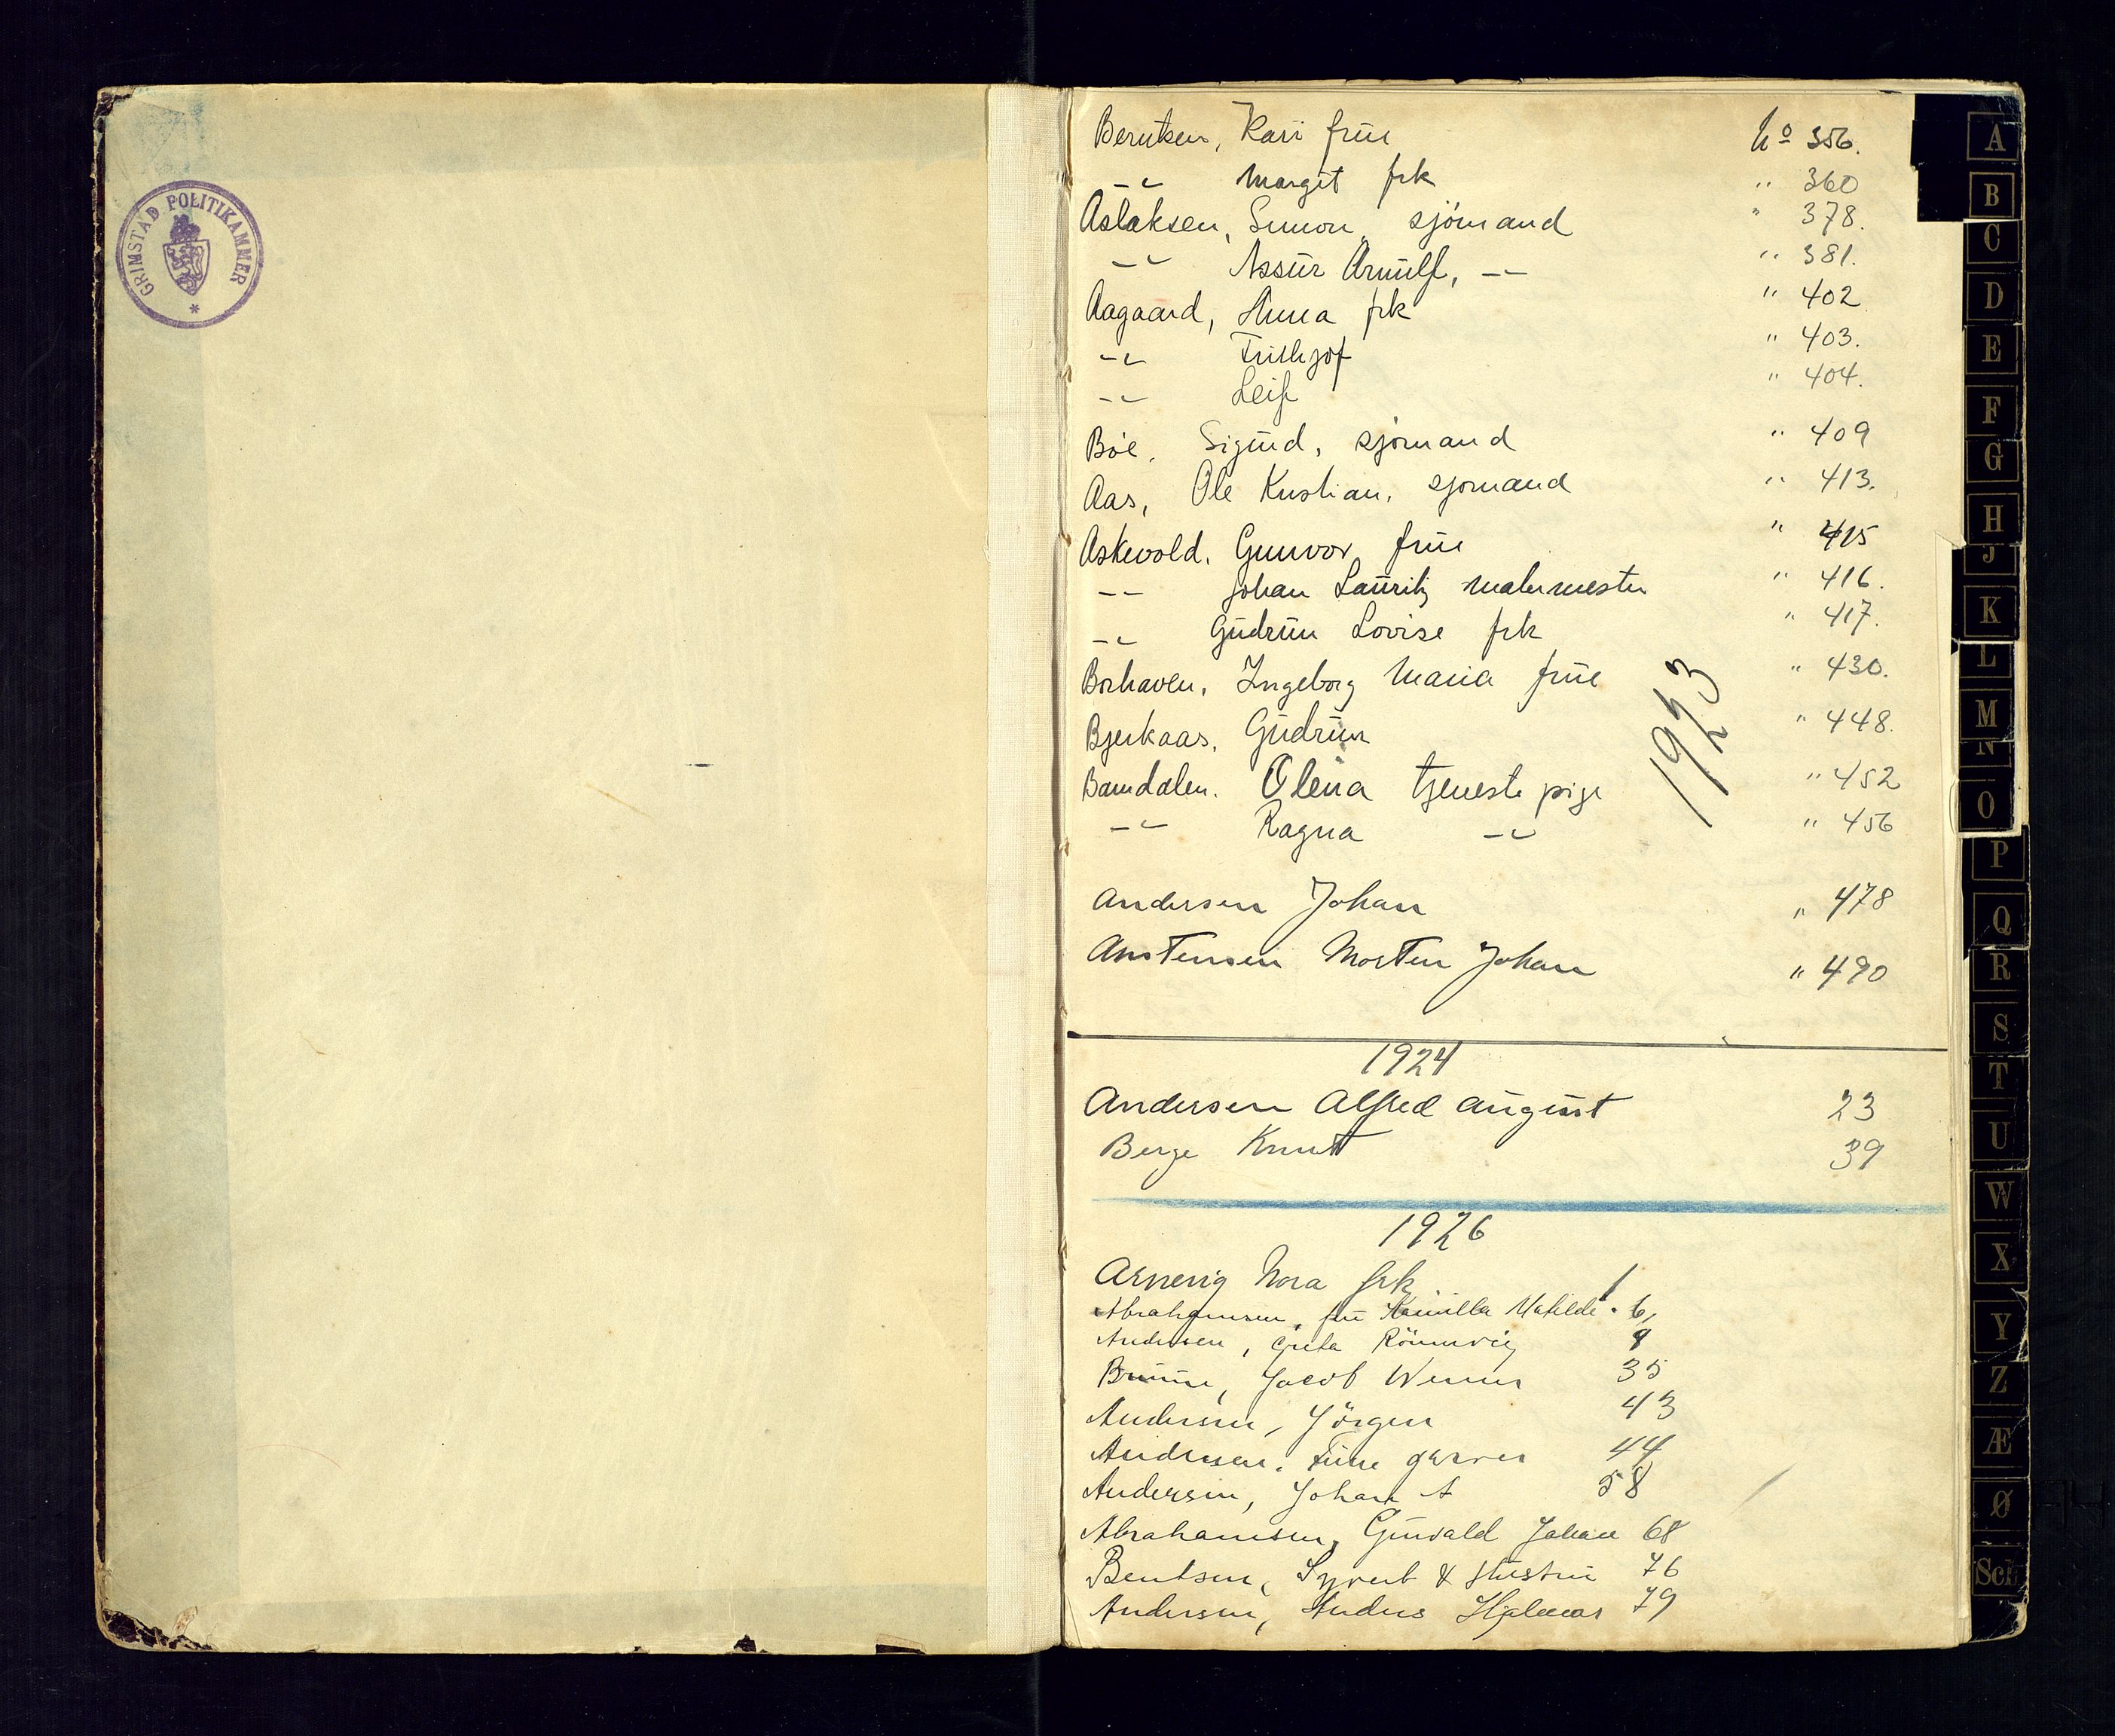 GRIMSTAD POLITIKAMMER *
Berntsen, Kari frue No 356.
-"- Margit frk " 360
Aslaksen, Simon, sjömand " 378.
-"- Assur Arnulf, -"- " 381.
Aagaard, Anna frk " 402
-"- Frithjof " 403.
-"- Leif " 404.
Böe, Sigurd, sjömand " 409
Aas, Ole Kristian, sjömand " 413.
Askevold, Gunvor frue " 415
-"- Johan Lauritz malermester " 416.
-"- Gudrun Lovise frk " 417.
Borhaven, Ingeborg Maria frue " 430.
1923
Bjerkaas, Gudrun " 448.
Bamdalen, Olena tjenestepige " 452
-"- Ragna -"- " 456
Andersen Johan " 478
Anstensen Morten Johan " 490
1924
Andersen Alfred August 23
Berge Knut 39
1926
Arnevig Nora frk 1
Abrahamsen, fru Kamilla Matilde 6,
Andersen, Greta Rönnvig 9
Bruun, Jacob Werner 35
Andersen, Jörgen 43
Andersen, garver 44
Andersen, Johan A 58
Abrahamsen, Gunvald Johan 68
Bentsen, Syvert & Hustru 76
Andersen, Anders Hjalmar 79
A
B
C
D
E
F
G
H
J
K
L
M
N
O
P
Q
R
S
T
U
W
X
Y
Z
Æ
Ø
Sch